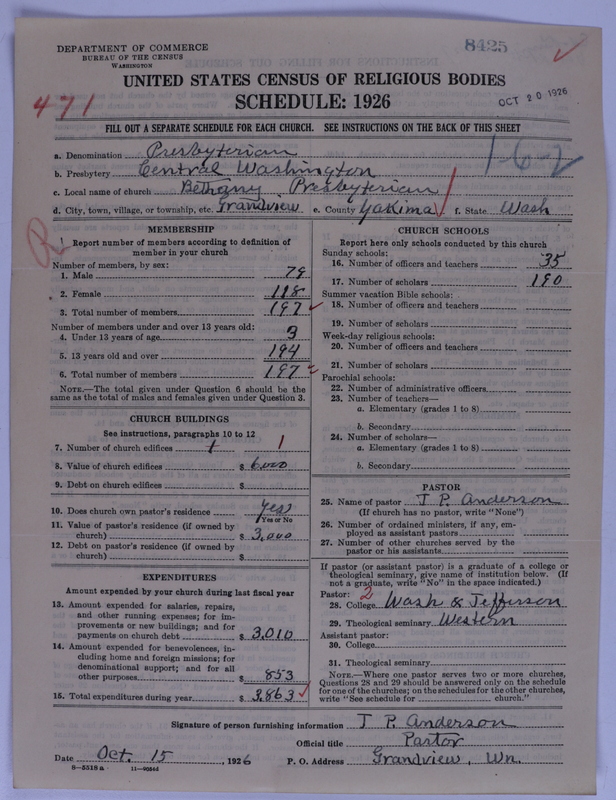 DEPARTMENT OF COMMERCE
BUREAU OF THE CENSUS
WASHINGTON
8425
UNITED STATES CENSUS OF RELIGIOUS BODIES
SCHEDULE: 1926
471
OCT 20 1926
FILL OUT A SEPARATE SCHEDULE FOR EACH CHURCH. SEE INSTRUCTIONS ON THE BACK OF THIS SHEET
a. Denomination Presbyterian
1-6-2
b. Presbytery Central Washington
c. Local name of church Bethany Presbyterian
d. City, town, village, or township, etc. Grandview e. County Yakima f. State Wash
R
MEMBERSHIP
Report number of members according to definition of member in your church
Number of members, by sex:
1. Male 79
2. Female 118
3. Total number of members 197
Number of members under and over 13 years old:
4. Under 13 years of age 3
5. 13 years old and over 194
6. Total number of members 197
NOTE.—The total given under Question 6 should be the same as the total of males and females given under Question 3.
CHURCH BUILDINGS
See instructions, paragraphs 10 to 12
7. Number of church edifices 1 1
8. Value of church edifices $ 6000
9. Debt on church edifices $
10. Does church own pastor's residence Yes
Yes or No
11. Value of pastor's residence (if owned by church) $ 3,000
12. Debt on pastor's residence (if owned by church) $
EXPENDITURES
Amount expended by your church during last fiscal year
13. Amount expended for salaries, repairs, and other running expenses; for improvements or new buildings; and for payments on church debt $ 3,010
14. Amount expended for benevolences, including home and foreign missions; for denominational support; and for all other purposes $ 853
15. Total expenditures during year $ 3,863
CHURCH SCHOOLS
Report here only schools conducted by this church
Sunday schools:
16. Number of officers and teachers 35
17. Number of scholars 190
Summer vacation Bible schools:
18. Number of officers and teachers
19. Number of scholars
Week-day religious schools:
20. Number of officers and teachers
21. Number of scholars
Parochial schools:
22. Number of administrative officers
23. Number of teachers—
a. Elementary (grades 1 to 8)
b. Secondary
24. Number of scholars—
a. Elementary (grades 1 to 8)
b. Secondary
PASTOR
25. Name of pastor J P. Anderson
(If church has no pastor, write "None")
26. Number of ordained ministers, if any, employed as assistant pastors
27. Number of other churches served by the pastor or his assistants
If pastor (or assistant pastor) is a graduate of a college or theological seminary, give name of institution below. (If not a graduate, write "No" in the space indicated.)
Pastor: 2
28. College Wash & Jefferson
29. Theological seminary Western
Assistant pastor:
30. College
31. Theological seminary
NOTE.—Where one pastor serves two or more churches, Questions 28 and 29 should be answered only on the schedule for one of the churches; on the schedules for the other churches, write "See schedule for church."
Signature of person furnishing information J P. Anderson
Official title Pastor
Date Oct. 15, 1926 P. O. Address Grandview, Wn.
8—5518 a